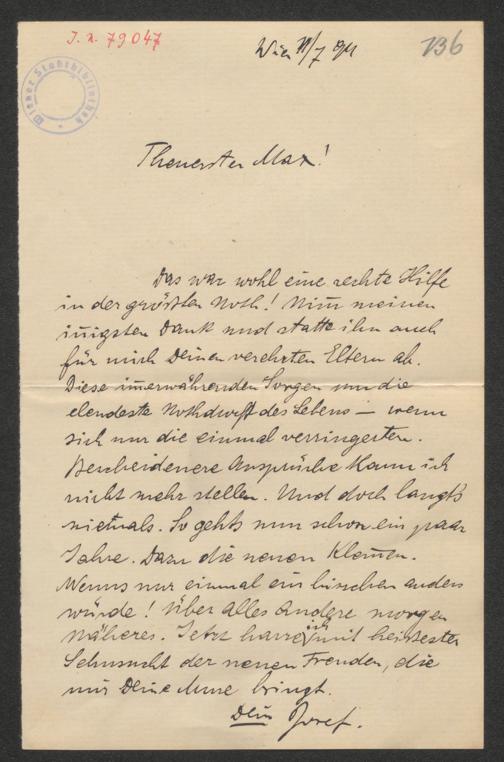 J. N. 79047
136
Wiener Stadtbibliothek
Wien 11/7 94
Theuerster Max!
Das war wohl eine rechte Hilfe
in der größten Noth! Nim̅ meinen
in̅igsten Dank und statte ihn auch
für mich Deinen verehrten Eltern ab.
Diese im̅erwährenden Sorgen um die
elendeste Nothdurft des Lebens — wenn
sich nur die einmal verringerten.
Bescheidenere Ansprüche kann ich
nicht mehr stellen. Und doch langt's
niemals. So gehts nun schon ein paar
Jahre. Dazu die neuen Klem̅en.
Wenns nur einmal ein bischen anders
würde! Über alles Andere morgen
Näheres. Jetzt harre ich mit heißester
Sehnsucht der neuen Freuden, die
mir Deine Muse bringt.
Dein Josef.